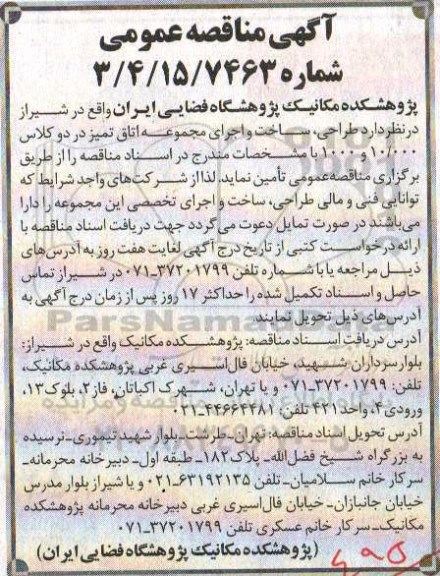 آگهی مناقصه عمومی
شماره ۳/۴/۱۵/۷۴۶۳
پژوهشکده مکانیک پژوهشگاه فضایی ایران واقع در شیراز
درنظر دارد طراحی، ساخت و اجرای مجموعه اتاق تمیز در دو کلاس
۱۰/۰۰۰ و ۱۰۰ را با مشخصات مندرج در اسناد مناقصه را از طریق
برگزاری مناقصه عمومی تأمین نماید. لذا از شرکت‌های واجد شرایط که
توانایی فنی و مالی طراحی، ساخت و اجرای تخصصی این مجموعه را دارا
می‌باشند در صورت تمایل دعوت می‌گردد جهت دریافت اسناد مناقصه با
ارائه درخواست کتبی از تاریخ درج آگهی لغایت هفت روز به آدرس‌های
ذیل مراجعه یا با شماره تلفن ۳۷۲۰۱۷۹۹-۰۷۱ در شیراز تماس
حاصل و اسناد تکمیل شده را حداکثر ۱۷ روز پس از زمان درج آگهی به
آدرس‌های ذیل تحویل نمایند
آدرس دریافت اسناد مناقصه: پژوهشکده مکانیک واقع در شیراز:
بلوار سرداران شهید، خیابان فال‌اسیری غربی پژوهشکده مکانیک،
تلفن: ۳۷۲۰۱۷۹۹-۰۷۱ و یا تهران، شهرک اکباتان، فاز ۲، بلوک ۱۳،
ورودی ۳، واحد ۴۲۱ تلفن: ۴۴۶۶۴۴۸۱-۰۲۱
آدرس تحویل اسناد مناقصه: تهران-طرشت-بلوار شهید تیموری-نرسیده
به بزرگراه شیخ فضل‌الله- پلاک ۱۸۲- طبقه اول- دبیرخانه محرمانه-
سرکار خانم سلامیان- تلفن ۶۳۱۹۲۱۳۵-۰۲۱ و یا شیراز بلوار مدرس
خیابان جانبازان- خیابان فال‌اسیری غربی دبیرخانه محرمانه پژوهشکده
مکانیک- سرکار خانم عسکری تلفن ۳۷۲۰۱۷۹۹-۰۷۱
(پژوهشکده مکانیک پژوهشگاه فضایی ایران)
ParsNamadData